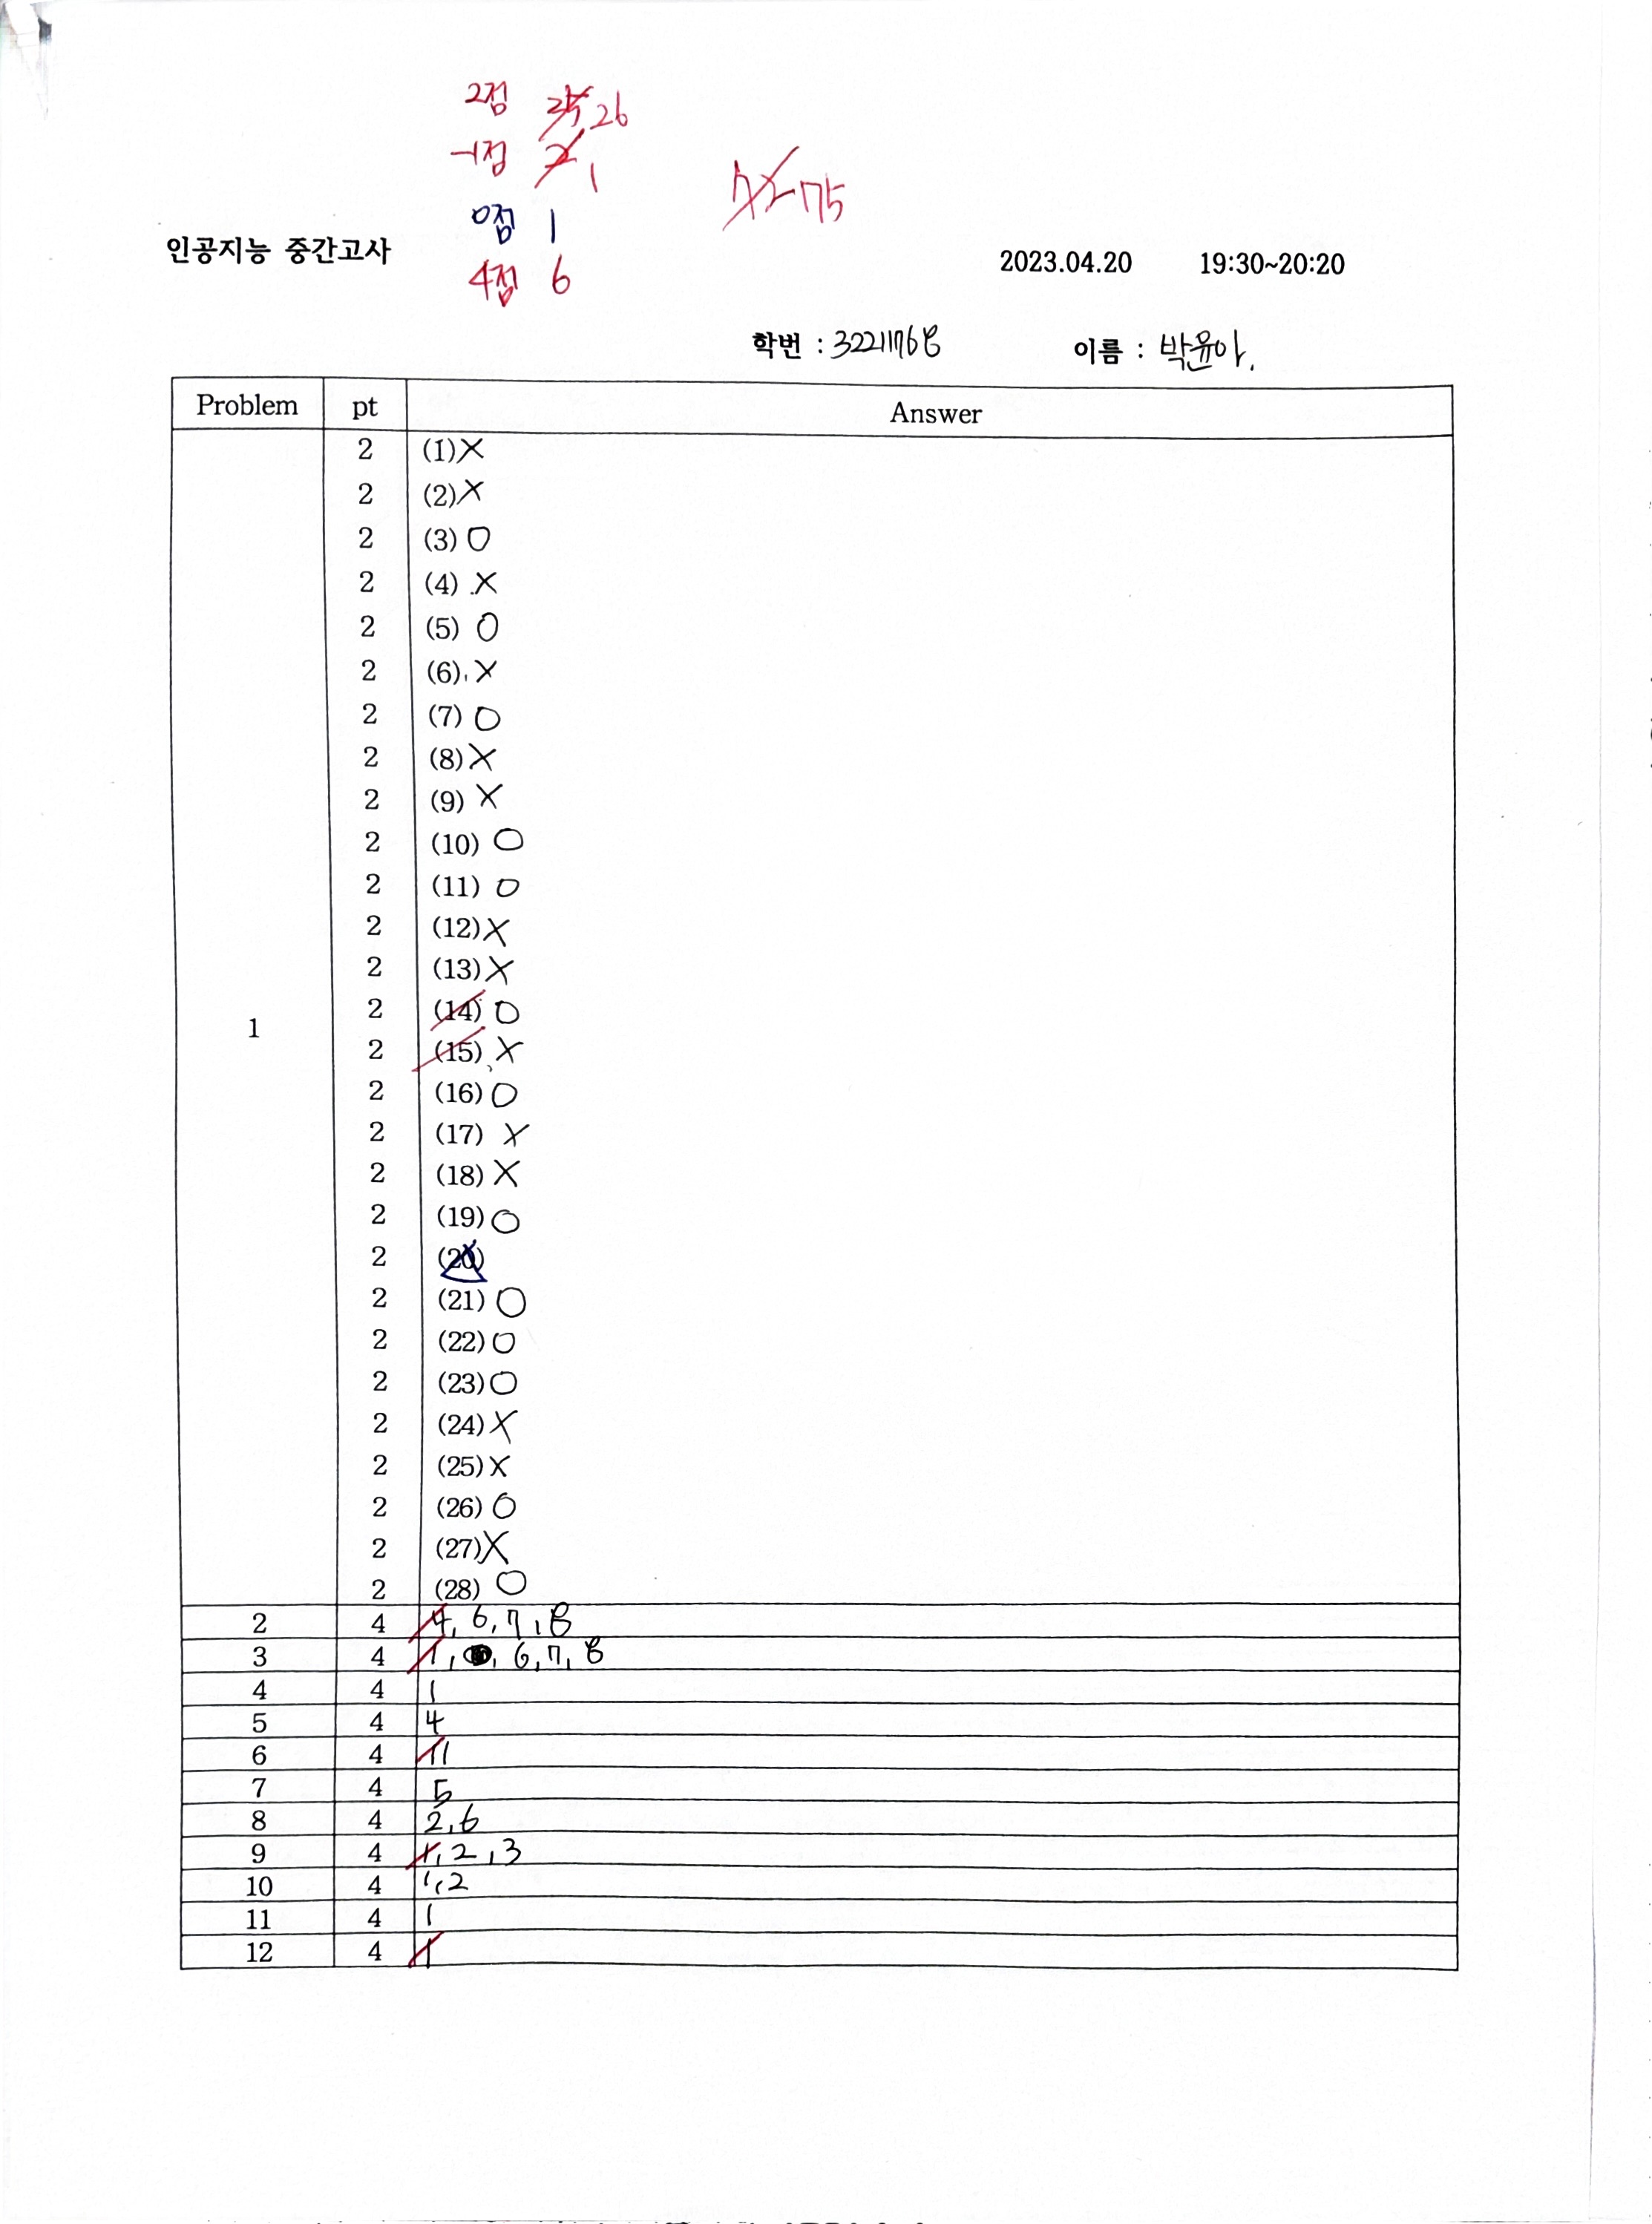 2점 25 26
-1점 2 1
72 75
0점 1
인공지능 중간고사
4점 6
2023.04.20 19:30~20:20
학번 : 32211768 이름 : 박윤아.
Problem pt Answer
1
2 (1) X
2 (2) X
2 (3) O
2 (4) X
2 (5) O
2 (6) X
2 (7) O
2 (8) X
2 (9) X
2 (10) O
2 (11) O
2 (12) X
2 (13) X
2 (14) O
2 (15) X
2 (16) O
2 (17) X
2 (18) X
2 (19) O
2 (20)
2 (21) O
2 (22) O
2 (23) O
2 (24) X
2 (25) X
2 (26) O
2 (27) X
2 (28) O
2 4 4, 6, 7, 8
3 4 1, 6, 7, 8
4 4 1
5 4 4
6 4 11
7 4 5
8 4 2, 6
9 4 1, 2, 3
10 4 1, 2
11 4 1
12 4 1